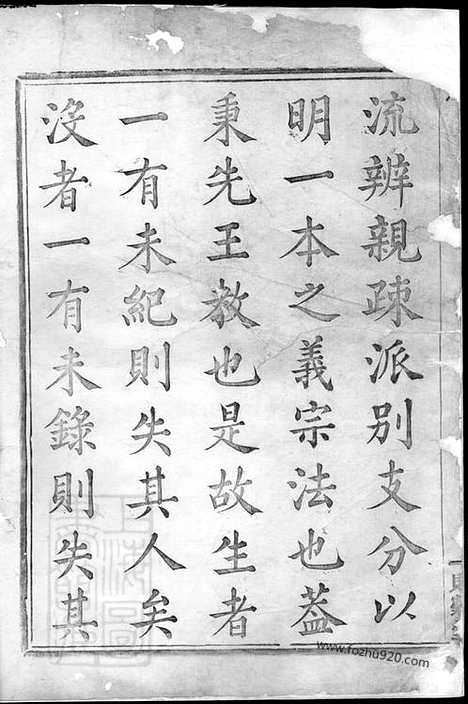 流辨親疎派別支分以
明一本之義宗法也葢
秉先王教也是故生者
一有未紀則失其人矣
沒者一有未錄則失其
www.fozhu920.com